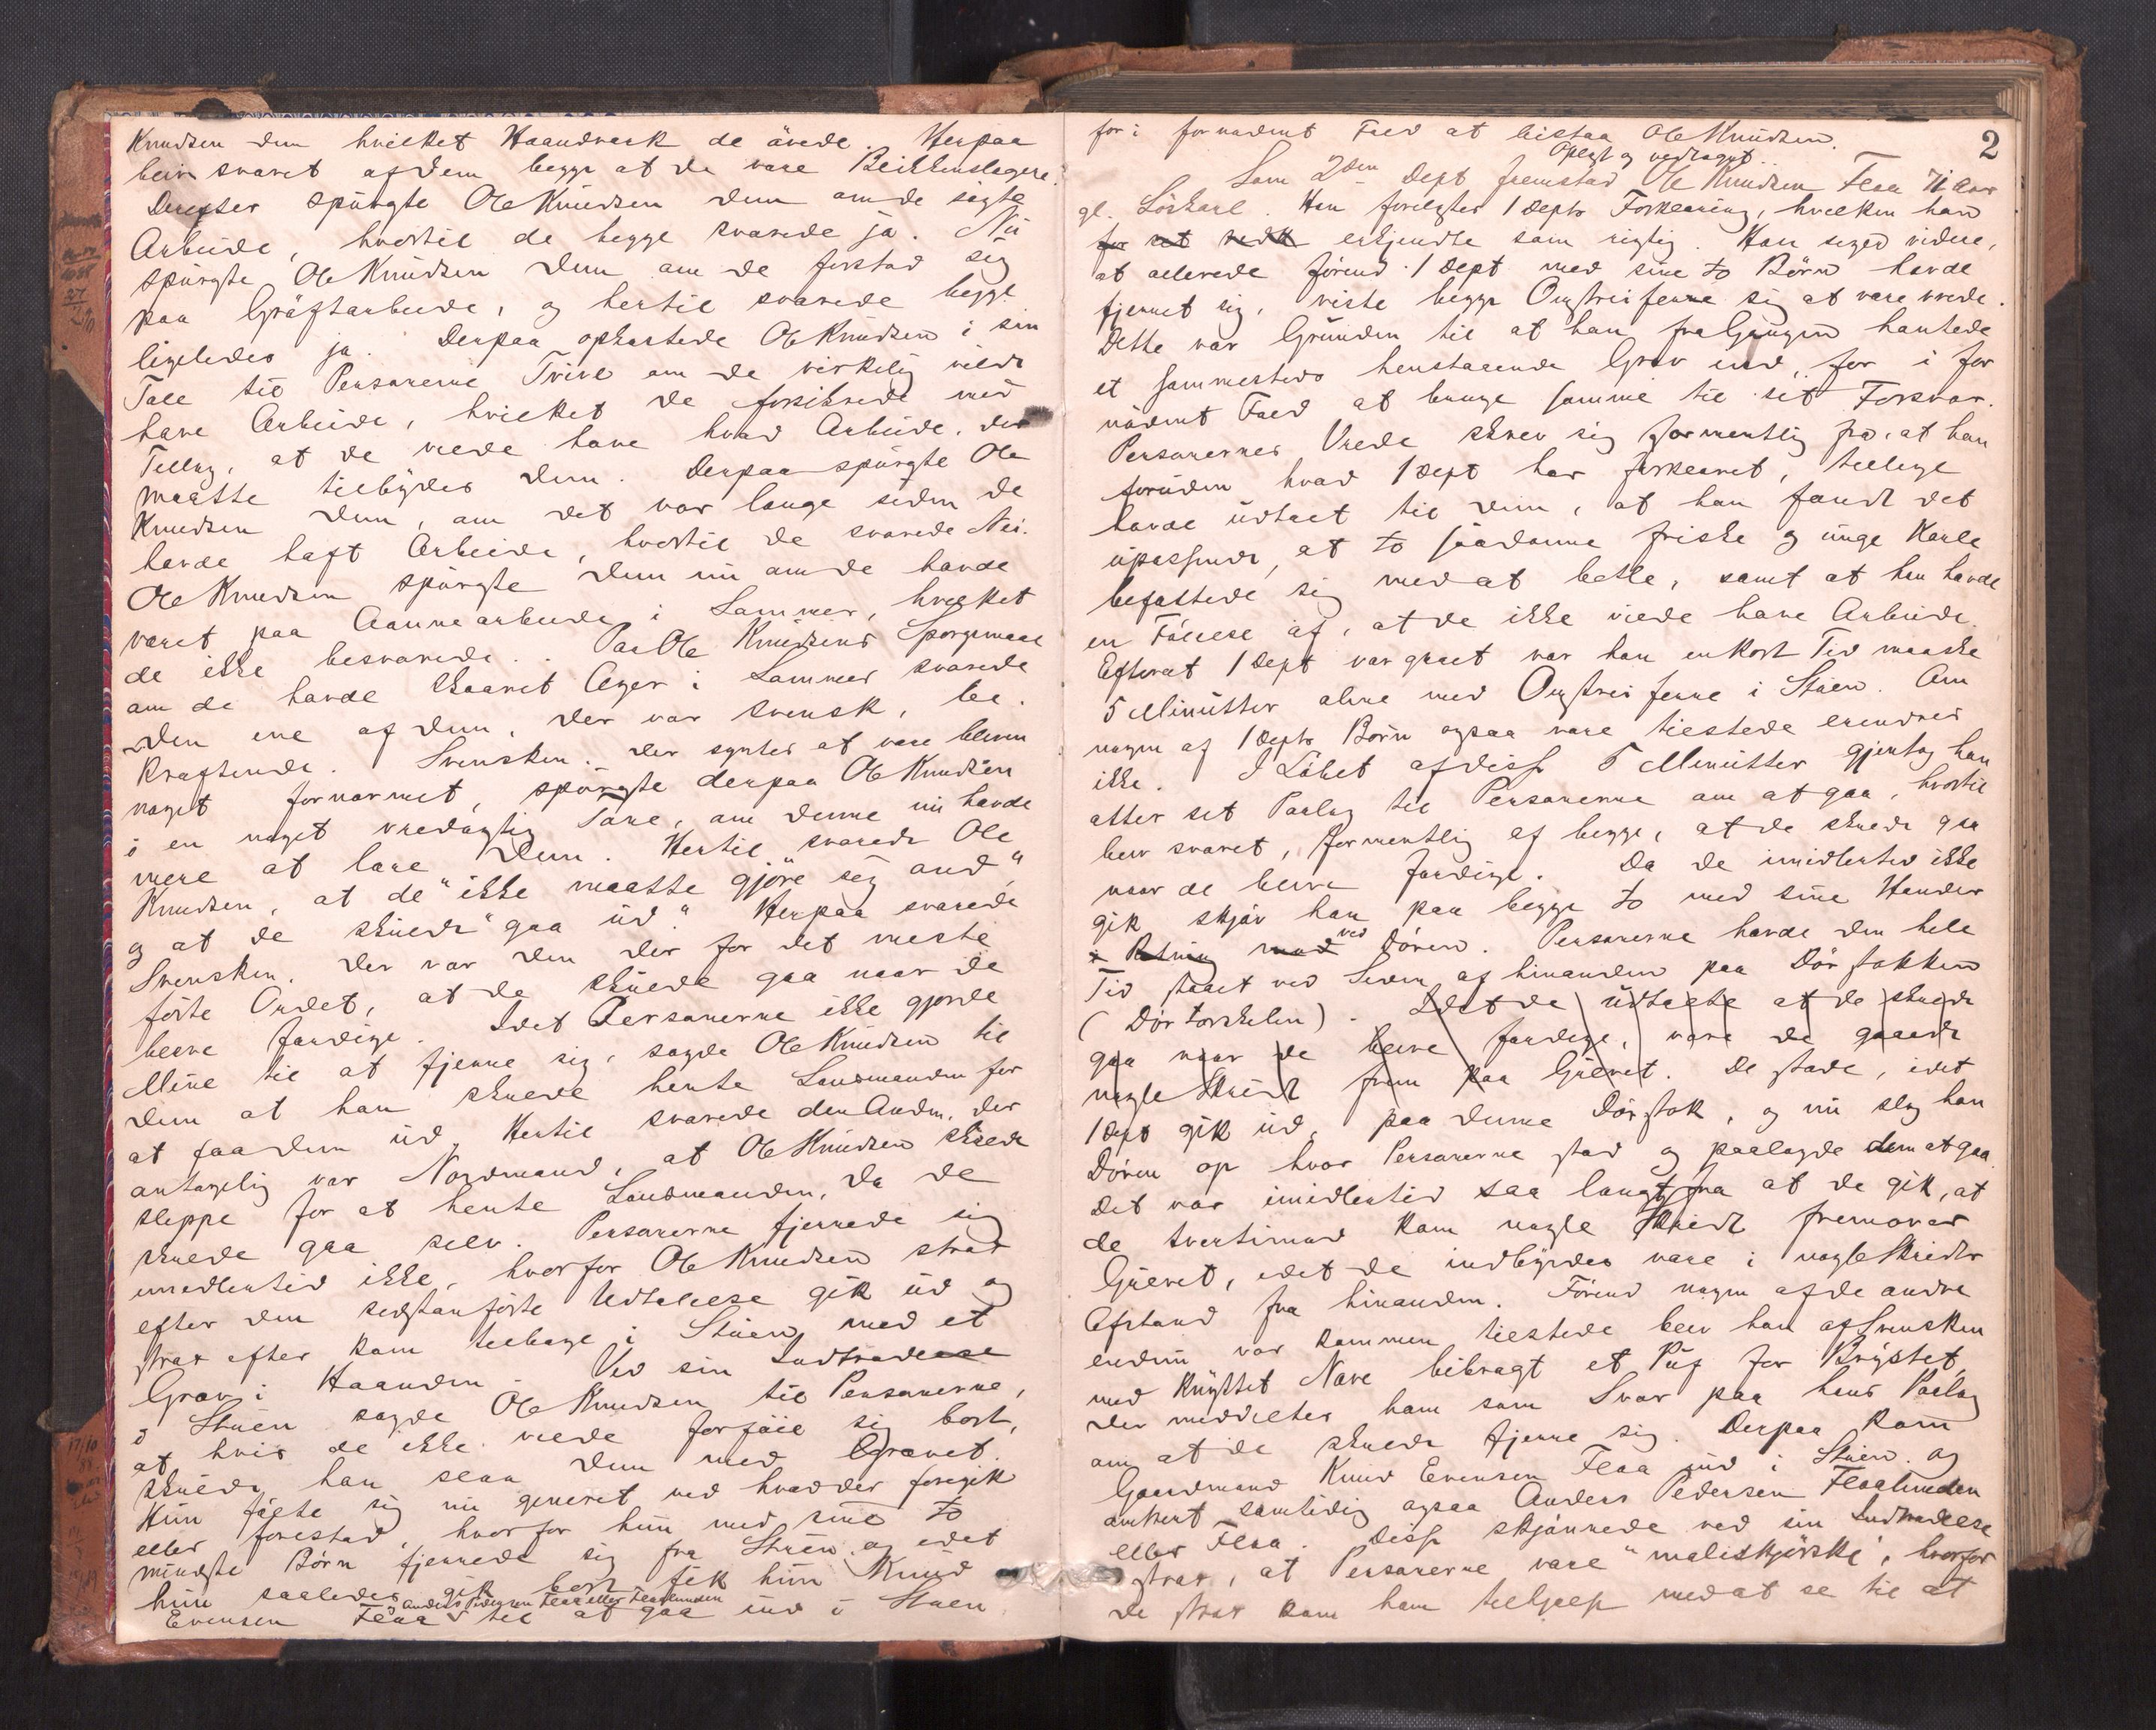 Knudsen dem hvilket Haandverk de övede. Herpaa
blev svaret af dem begge at de vare Blikkenslagere.
Derefter spurgte Ole Knudsen dem om de søgte
Arbeide, hvortil de begge svarede ja. Nu
spurgte Ole Knudsen dem om de forstod sig
paa Gröftarbeide, og hertil svarede begge
ligeledes ja. Derpaa opkastede Ole Knudsen i sin
Tale til Personerne Tvivl om de virkelig vilde
have Arbeide, hvilket de forsikrede med
Tillæg, at de vilde have hvad Arbeide, der
maatte tilbydes dem. Derpaa spurgte Ole
Knudsen dem, om det var længe siden de
havde haft Arbeide, hvortil de svarede Nei.
Ole Knudsen spurgte dem nu om de havde
været paa Aannearbeide i Sommer, hvilket
de ikke besvarede. Paa Ole Knudsens Spørgsmaal
om de havde skaaret Ager i Sommer svarede
den ene af dem, der var svensk, be-
kræftende. Svensken, der syntes at være bleven
noget fornærmet, spurgte derpaa Ole Knudsen
i en noget vredagtig Tone, om denne nu havde
mere at lære dem. Hertil svarede Ole
Knudsen, at de "ikke maatte gjöre sig ond"
og at de skulde "gaa ud." Herpaa svarede
Svensken, der var den der for det meste
förte Ordet, at de skulde gaa naar de
bleve færdige. Idet Personerne ikke gjorde
Mine til at fjerne sig, sagde Ole Knudsen til
dem at han skulde hente Lensmanden for
at faa dem ud. Hertil svarede den Anden, der
antagelig var Nordmand, at Ole Knudsen skulde
sleppe for at hente Lensmanden, da de
skulde gaa selv. Personerne fjernede sig
imidlertid ikke, hvorfor Ole Knudsen strax
efter den sidstanførte Udtalelse gik ud og
strax efter kom tilbage i Stuen med et
Grev i Haanden. Ved sin Indtrædelse
i Stuen sagde Ole Knudsen til Personerne,
at hvis de ikke vilde forføie sig bort,
skulde han slaa dem med Grevet.
Hun følte sig nu generet ved hvad der foregik
eller forestod, hvorfor hun med sine to
mindste Börn fjernede sig fra Stuen, og idet
hun saaledes gik bort, fik hun Knud
og Anders Pedersen Flaa eller Flaalunden
Evensen Flaa til at gaa ind i Stuen
for i fornødent Fald at bistaa Ole Knudsen.
2
Oplæst og vedtaget.
Som 2den Dept fremstod Ole Knudsen Flaa 71 Aar
gl. Löskarl. Han forelagdes 1 Depts Forklaring, hvilken han
erkjendte som rigtig. Han siger videre,
at allerede förend 1 Dept med sine to Börn havde
fjernet sig, viste begge Omstreiferne sig at være vrede.
Dette var Grunden til at han fra Gangen hentede
et sammesteds henstaaende Grev ind, for i for
nödent Fald at bruge samme til sit Forsvar.
Personernes Vrede skrev sig formentlig fra, at han
foruden hvad 1 Dept har forklaret, tillige
havde udtalt til dem, at han fandt det
upassende, at to saadanne friske og unge Karle
befattede sig med at betle, samt at han havde
en Følelse af, at de ikke vilde have Arbeide.
Efterat 1 Dept var gaaet var han en kort Tid maaske
5 Minutter alene med Omstreiferne i Stuen. Om
nogen af 1 Depts Börn ogsaa vare tilstede erindres
ikke. I Löbet af disse 5 Minutter gjentog han
atter sit Paalæg til Personerne om at gaa, hvortil
blev svaret, formentlig af begge, at de skulde gaa
naar de bleve færdige. Da de imidlertid ikke
gik skjöv han paa begge to med sine Hænder
ved
i Retning mod Dören. Personerne havde den hele
Tid staaet ved Siden af hinanden paa Dörstokken
(Dörtærskelen). Idet de udtalte at de skulde
gaa naar de bleve færdige, vare de gaaede
nogle Skridt frem paa Gulvet. De stode, idet
1 Dept gik ud, paa denne Dörstok, og nu slog han
Dören op hvor Personerne stod og paalagde dem at gaa.
Det var imidlertid saa langt fra at de gik, at
de tvertimod kom nogle Skridt fremover
Gulvet, idet de indbyrdes vare i nogle Skridts
Afstand fra hinanden. Förend nogen af de andre
endnu var kommen tilstede blev han af Svensken
med knyttet Næve bibragt et Puf for Brystet,
der meddeltes ham som Svar paa hans Paalæg
om at de skulde fjerne sig. Derpaa kom
Gaardmand Knud Evensen Flaa ind i Stuen og
omtrent samtidig ogsaa Anders Pedersen Flaalunden
eller Flaa. Disse skjönnede ved sin Indtrædelse
strax, at Personerne vare "maliskjövske", hvorfor
de strax kom ham tilhjælp med at se til at